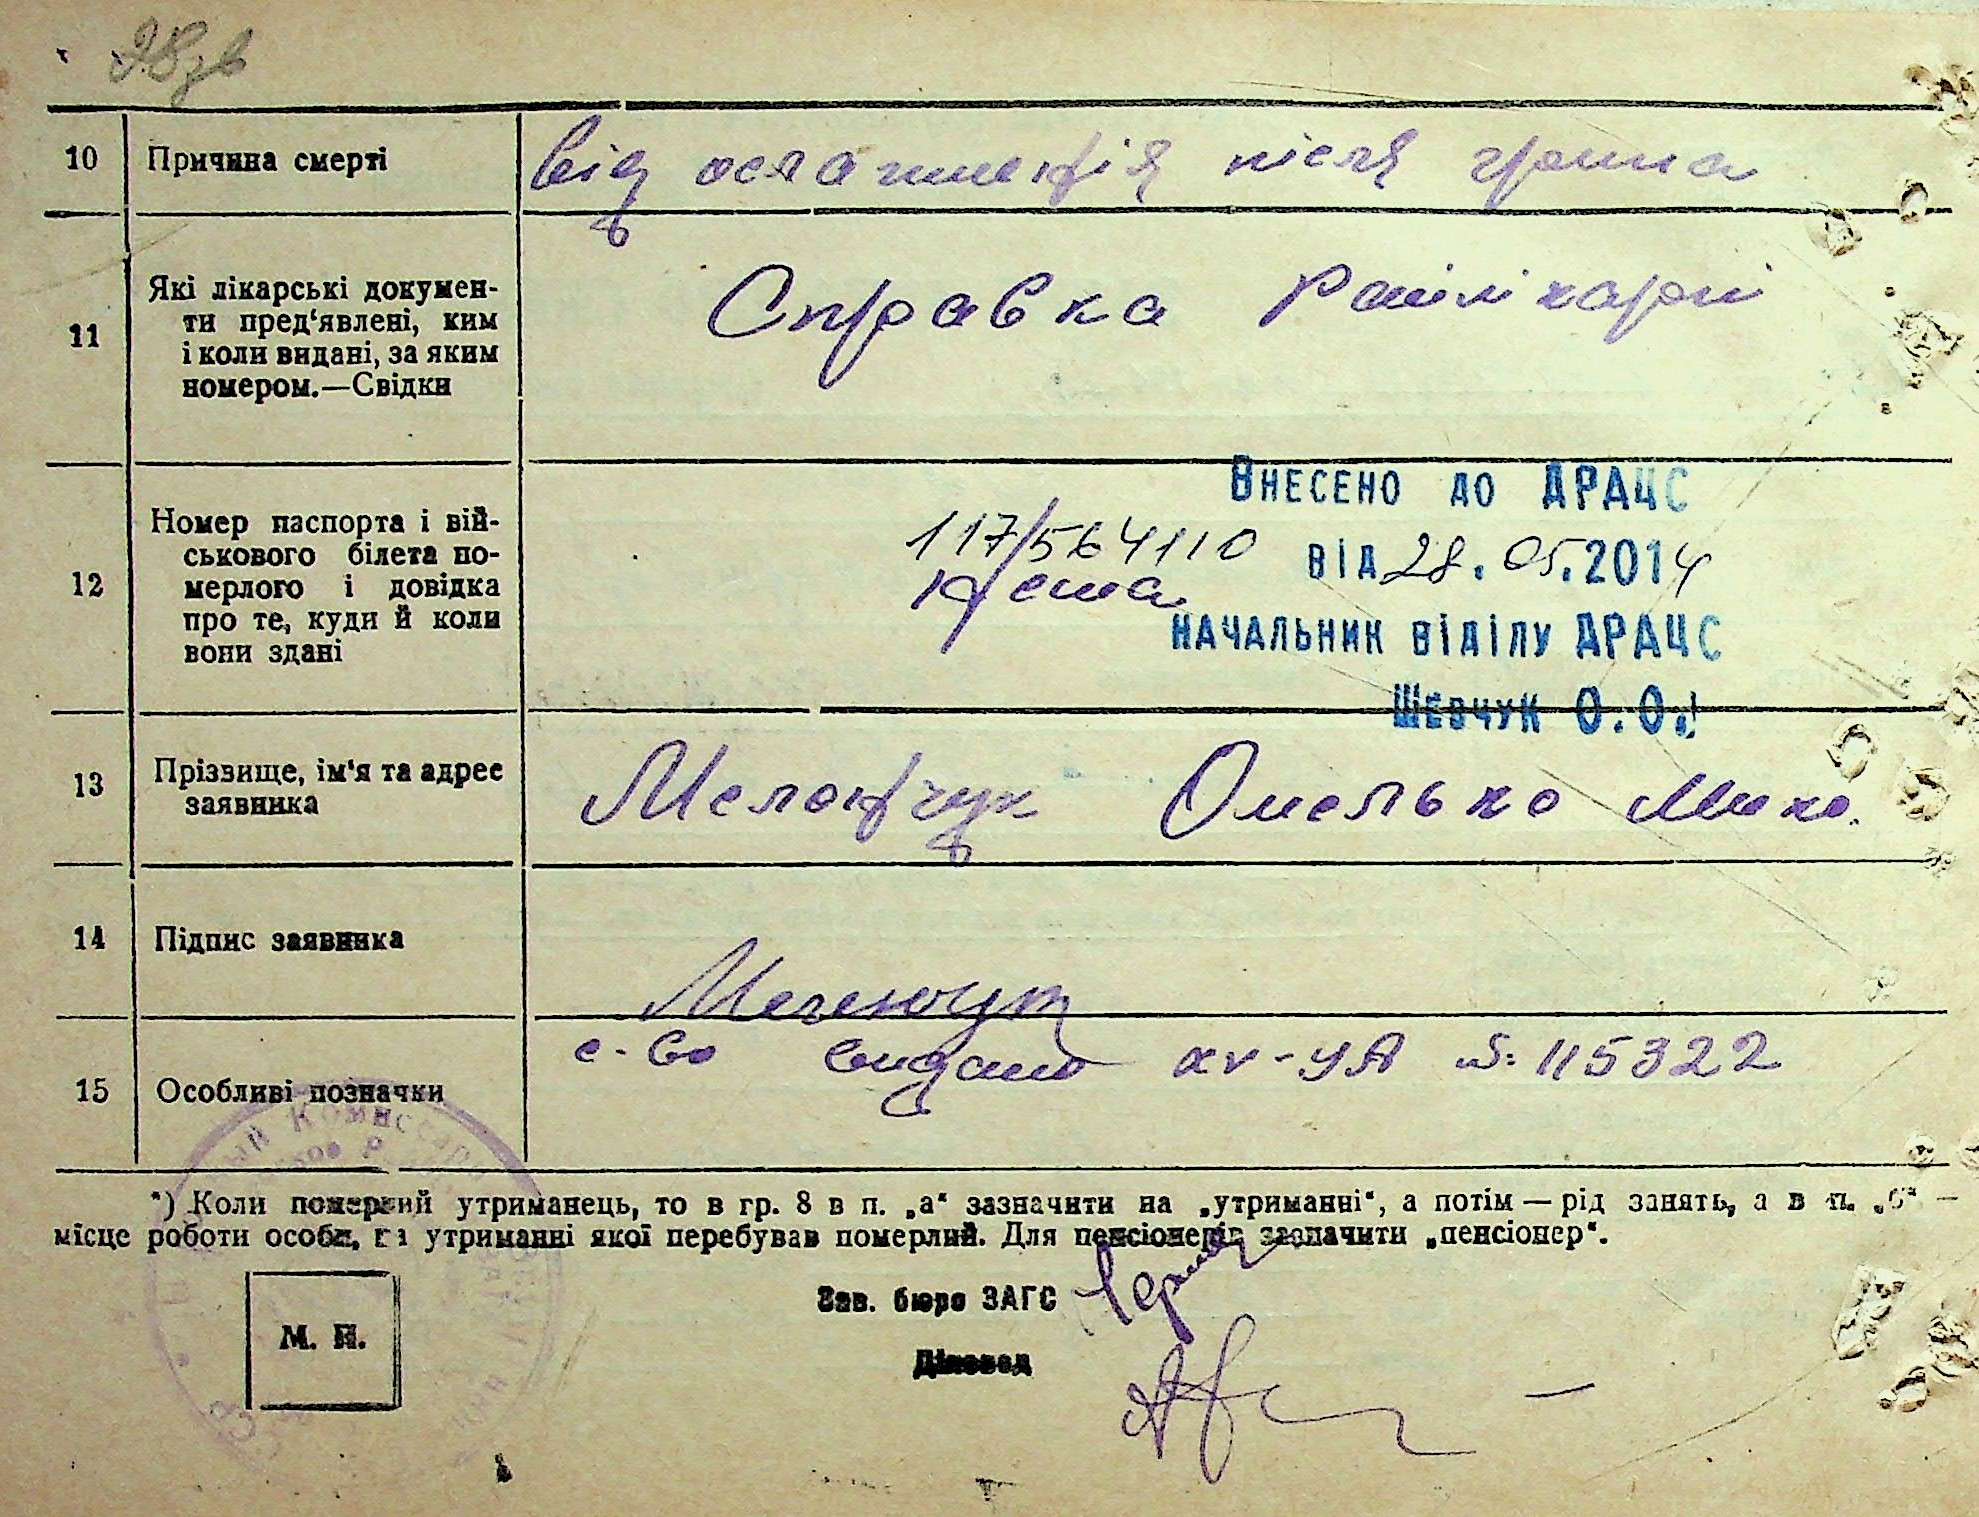 10 Причина смерті
від ослажненія після гриппа
11 Які лікарські докумен-
ти пред'явлені, ким
і коли видані, за яким
номером.—Свідки
Справка Райлікарні
12 Номер паспорта і вій-
ськового білета по-
мерлого і довідка
про те, куди й коли
вони здані
117/564110
Внесено до ДРАЦС
від 28.05.2014
начальник відділу ДРАЦС
Шевчук О.О.
13 Прізвище, ім'я та адрес
заявника
Омелько Мико.
14 Підпис заявника
15 Особливі позначки
с-во видано XV-УА №: 115322
*) Коли померлий утриманець, то в гр. 8 в п. „а" зазначити на „утриманні", а потім — рід занять, а в п. „б" —
місце роботи особи, на утриманні якої перебував померлий. Для пенсіонерів зазначити „пенсіонер".
Зав. бюро ЗАГС
М. П.
Діловод